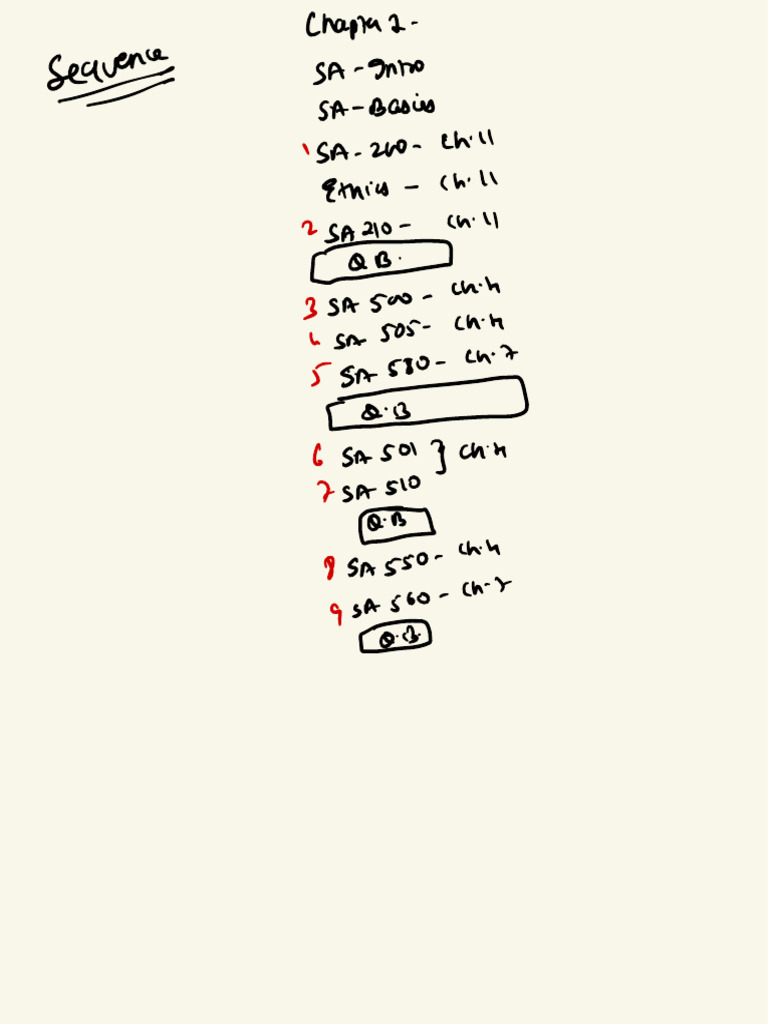 Sequence
Chapter 2 -
SA - Intro
SA - Basics
1 SA - 200 - Ch. 11
Ethics - Ch. 11
2 SA 210 - Ch. 11
Q B.
3 SA 500 - Ch. 4
4 SA 505 - Ch. 4
5 SA 580 - Ch. 7
Q. B
6 SA 501 } Ch. 4
7 SA 510
Q. B
8 SA 550 - Ch. 4
9 SA 560 - Ch - 7
Q. B.